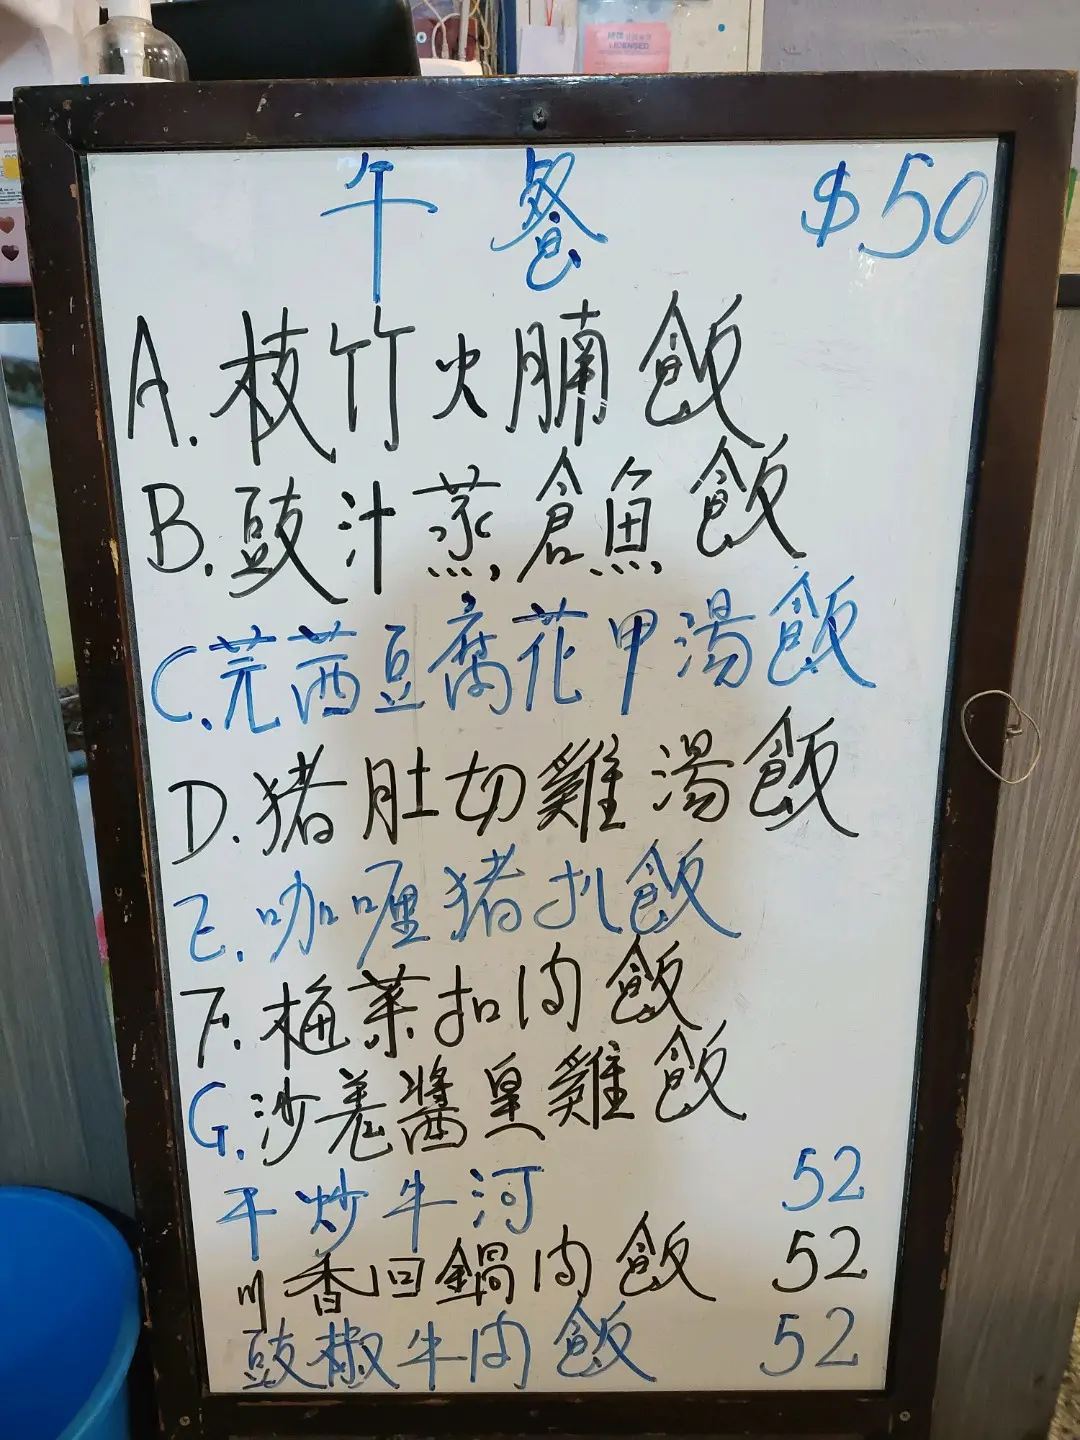 LICENSED
午餐 $50
A. 枝竹火腩飯
B. 豉汁蒸倉魚飯
C. 芫茜豆腐花甲湯飯
D. 猪肚切雞湯飯
E. 咖喱猪扒飯
F. 梅菜扣肉飯
G. 沙羗醬皇雞飯
干炒牛河 52
川香回鍋肉飯 52
豉椒牛肉飯 52